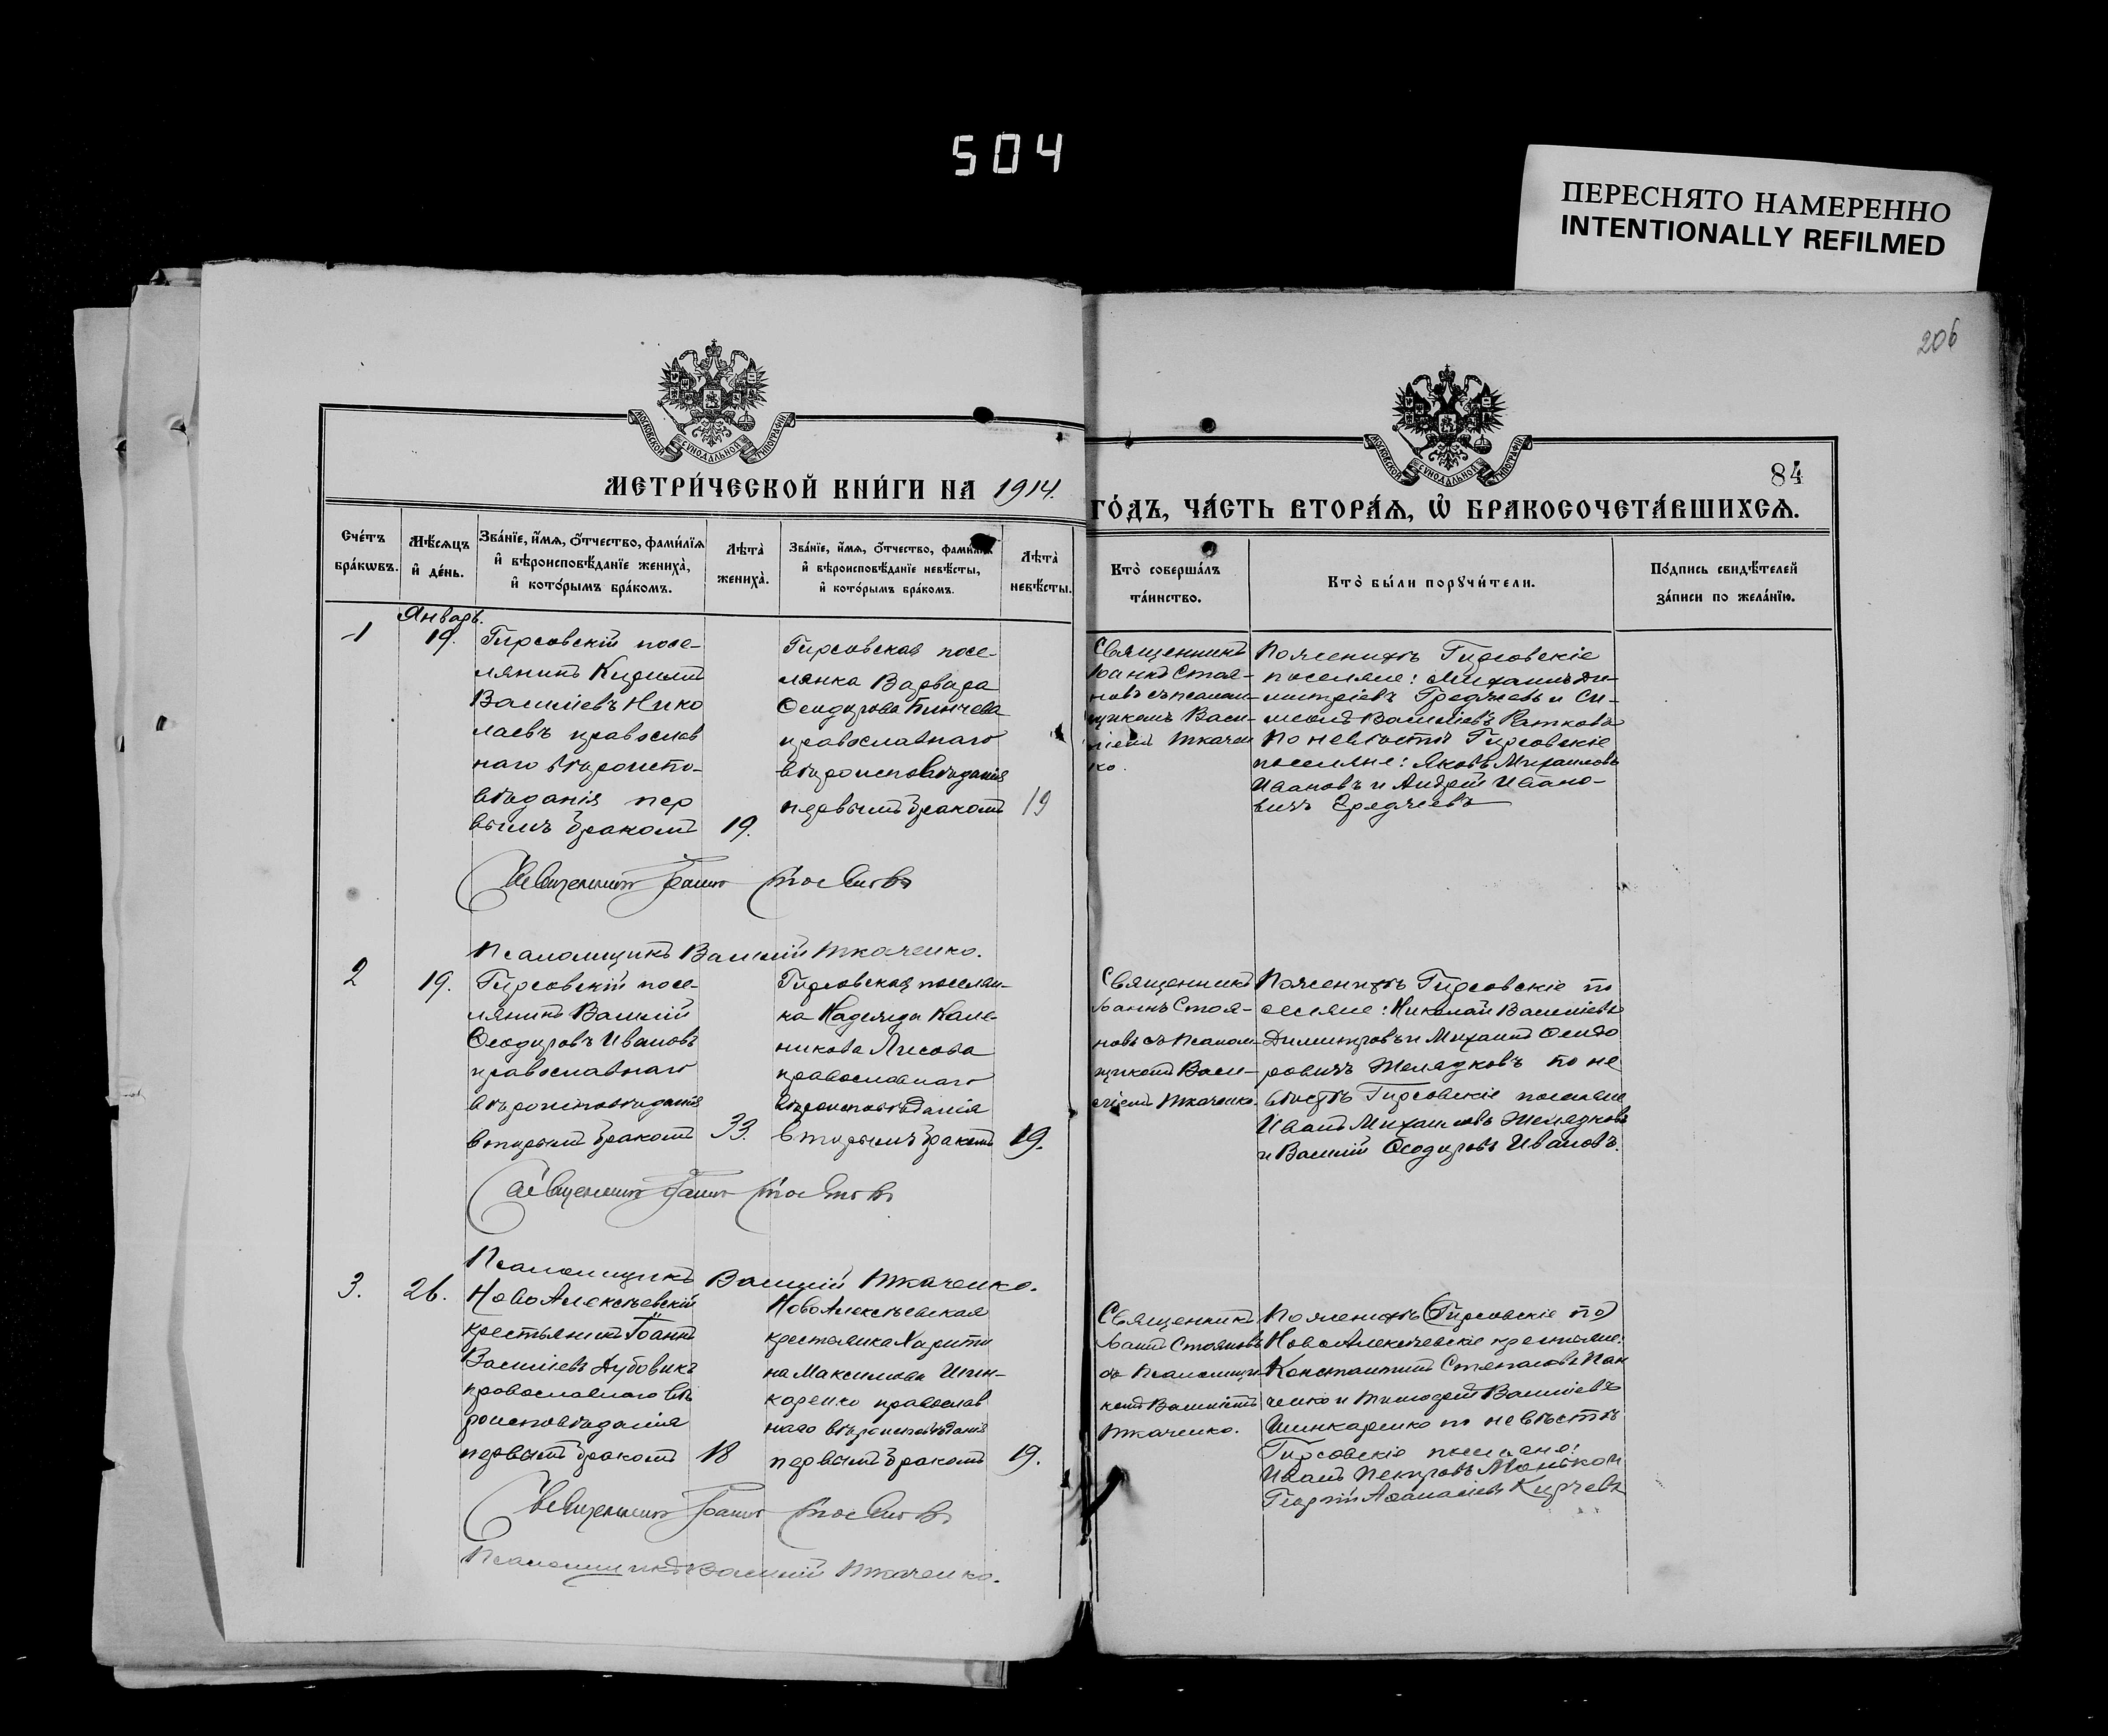 504
ПЕРЕСНЯТО НАМЕРЕННО
INTENTIONALLY REFILMED
206
МОСКОВСКОЙ СУНОДАЛЬНОЙ ТИПОГРАФІИ
МОСКОВСКОЙ СУНОДАЛЬНОЙ ТИПОГРАФІИ
84
МЕТРИ́ЧЕСКОЙ КНИ́ГИ НА 1914.
ГО́ДЪ, ЧА́СТЬ ВТОРА́Ѧ, Ѡ҆ БРАКОСОЧЕТА́ВШИХСѦ.
Сче́тъ
бра́кѡвъ.
Мѣ́сѧцъ
и҆ де́нь.
Зва́нїе, и҆́мѧ, ѻ҆́тчество, фами́лїѧ
и҆ вѣроисповѣ́данїе жениха̀,
и҆ кото́рымъ бра́комъ.
Лѣ́та̀
жениха̀.
Зва́нїе, и҆́мѧ, ѻ҆́тчество, фами́лїѧ
и҆ вѣроисповѣ́данїе невѣ́сты,
и҆ кото́рымъ бра́комъ.
Лѣ́та̀
невѣ́сты.
Кто̀ соверша́лъ
та́инство.
Кто̀ бы́ли порꙋчи́тели.
По́дпись свидѣ́телей
за́писи по жела́нїю.
Январь.
1
19.
Гирсовскій посе-
лянинъ Кириллъ
Василіевъ Нико
лаевъ православ
наго вѣроиспо-
вѣданія пер
вымъ бракомъ
19.
Гирсовская посе-
лянка Варвара
Ѳеодорова Бинчева
православнаго
вѣроисповѣданія
первымъ бракомъ
19
Священникъ
Іоаннъ Стоя-
новъ съ псалом-
щикомъ Васи-
ліемъ Ткачен
ко.
По женихѣ Гирсовскіе
поселяне: Михаилъ Ди-
митріевъ Греджевъ и Си-
меонъ Василіевъ Ратковъ
По невѣстѣ Гирсовскіе
поселяне: Яковъ Михаиловъ
Ивановъ и Андрей Ивано-
вичъ Греджевъ
Священникъ Іоаннъ Стояновъ
Псаломщикъ Василій Ткаченко.
2
19.
Гирсовскій посе-
лянинъ Василій
Ѳеодоровъ Ивановъ
православнаго
вѣроисповѣданія
вторымъ бракомъ
33.
Гирсовская поселян-
ка Надежда Кали-
никова Лисова
православнаго
вѣроисповѣданія
вторымъ бракомъ
19.
Священникъ
Іоаннъ Стоя-
новъ съ Псалом-
щикомъ Васи-
ліемъ Ткаченко.
По женихѣ Гирсовскіе по
селяне: Николай Василіевъ
Димитровъ и Михаилъ Ѳеодо
ровичъ Желязковъ по не
вѣстѣ Гирсовскіе поселяне
Иванъ Михаиловъ Желязковъ
и Василій Ѳеодоровъ Ивановъ.
Священникъ Іоаннъ Стояновъ
Псаломщикъ Василій Ткаченко.
3.
26.
Ново Алексѣевскій
крестьянинъ Іоаннъ
Василіевъ Дубовикъ
православнаго вѣ
роисповѣданія
первымъ бракомъ
18
Ново Алексѣевская
крестьянка Харити
на Максимова Шин-
каренко православ
наго вѣроисповѣданія
первымъ бракомъ
19.
Священникъ
Іоаннъ Стояновъ
съ Псаломщи-
комъ Василіемъ
Ткаченко.
По женихѣ (Гирсовскіе по)
Ново Алексѣевскіе крестьяне:
Константинъ Степановъ Пан
ченко и Тимоѳей Василіевъ
Шинкаренко по невѣстѣ
Гирсовскіе поселяне:
Иванъ Петровъ
Георгій Аѳанасіевъ Кирчевъ
Священникъ Іоаннъ Стояновъ
Псаломщикъ Василій Ткаченко.